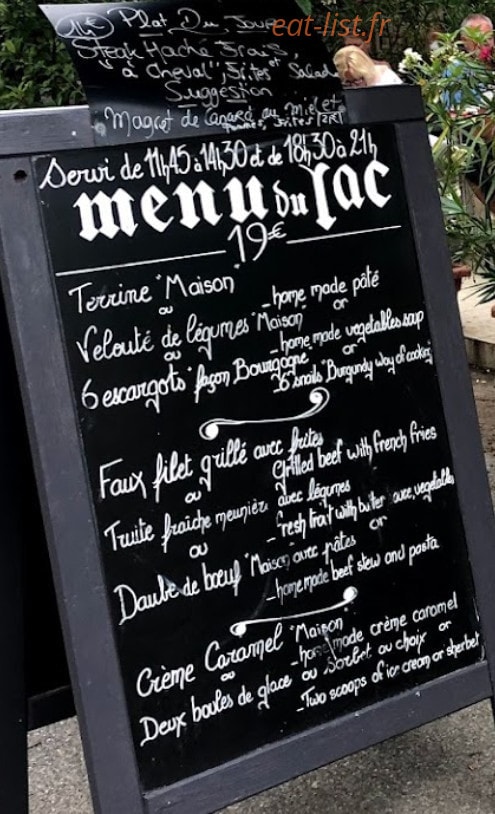 eat-list.fr
14€ Plat Du Jour
Steak Haché Frais,
"à Cheval", Frites Salade
Suggestion
Magret de Canard au Miel et
Pommes, Frites
Servi de 11h45 à 14h30 et de 18h30 à 21h
menu du lac
19€
Terrine "Maison"
_home made pâté
ou
or
Velouté de légumes "Maison"
_home made vegetables soup
ou
or
6 escargots "façon Bourgogne"
_6 snails "Burgundy way of cooking
Faux filet grillé avec frites
Grilled beef with french fries
ou
Truite fraiche meunière avec légumes
_fresh trait with butter avec vegetables
ou
or
Daube de bœuf "Maison avec pâtes
_home made beef stew and pasta
Crème Caramel "Maison"
_home made crème caramel
ou
or
Deux boules de glace ou Sorbet au choix
_Two scoops of ice cream or sherbet